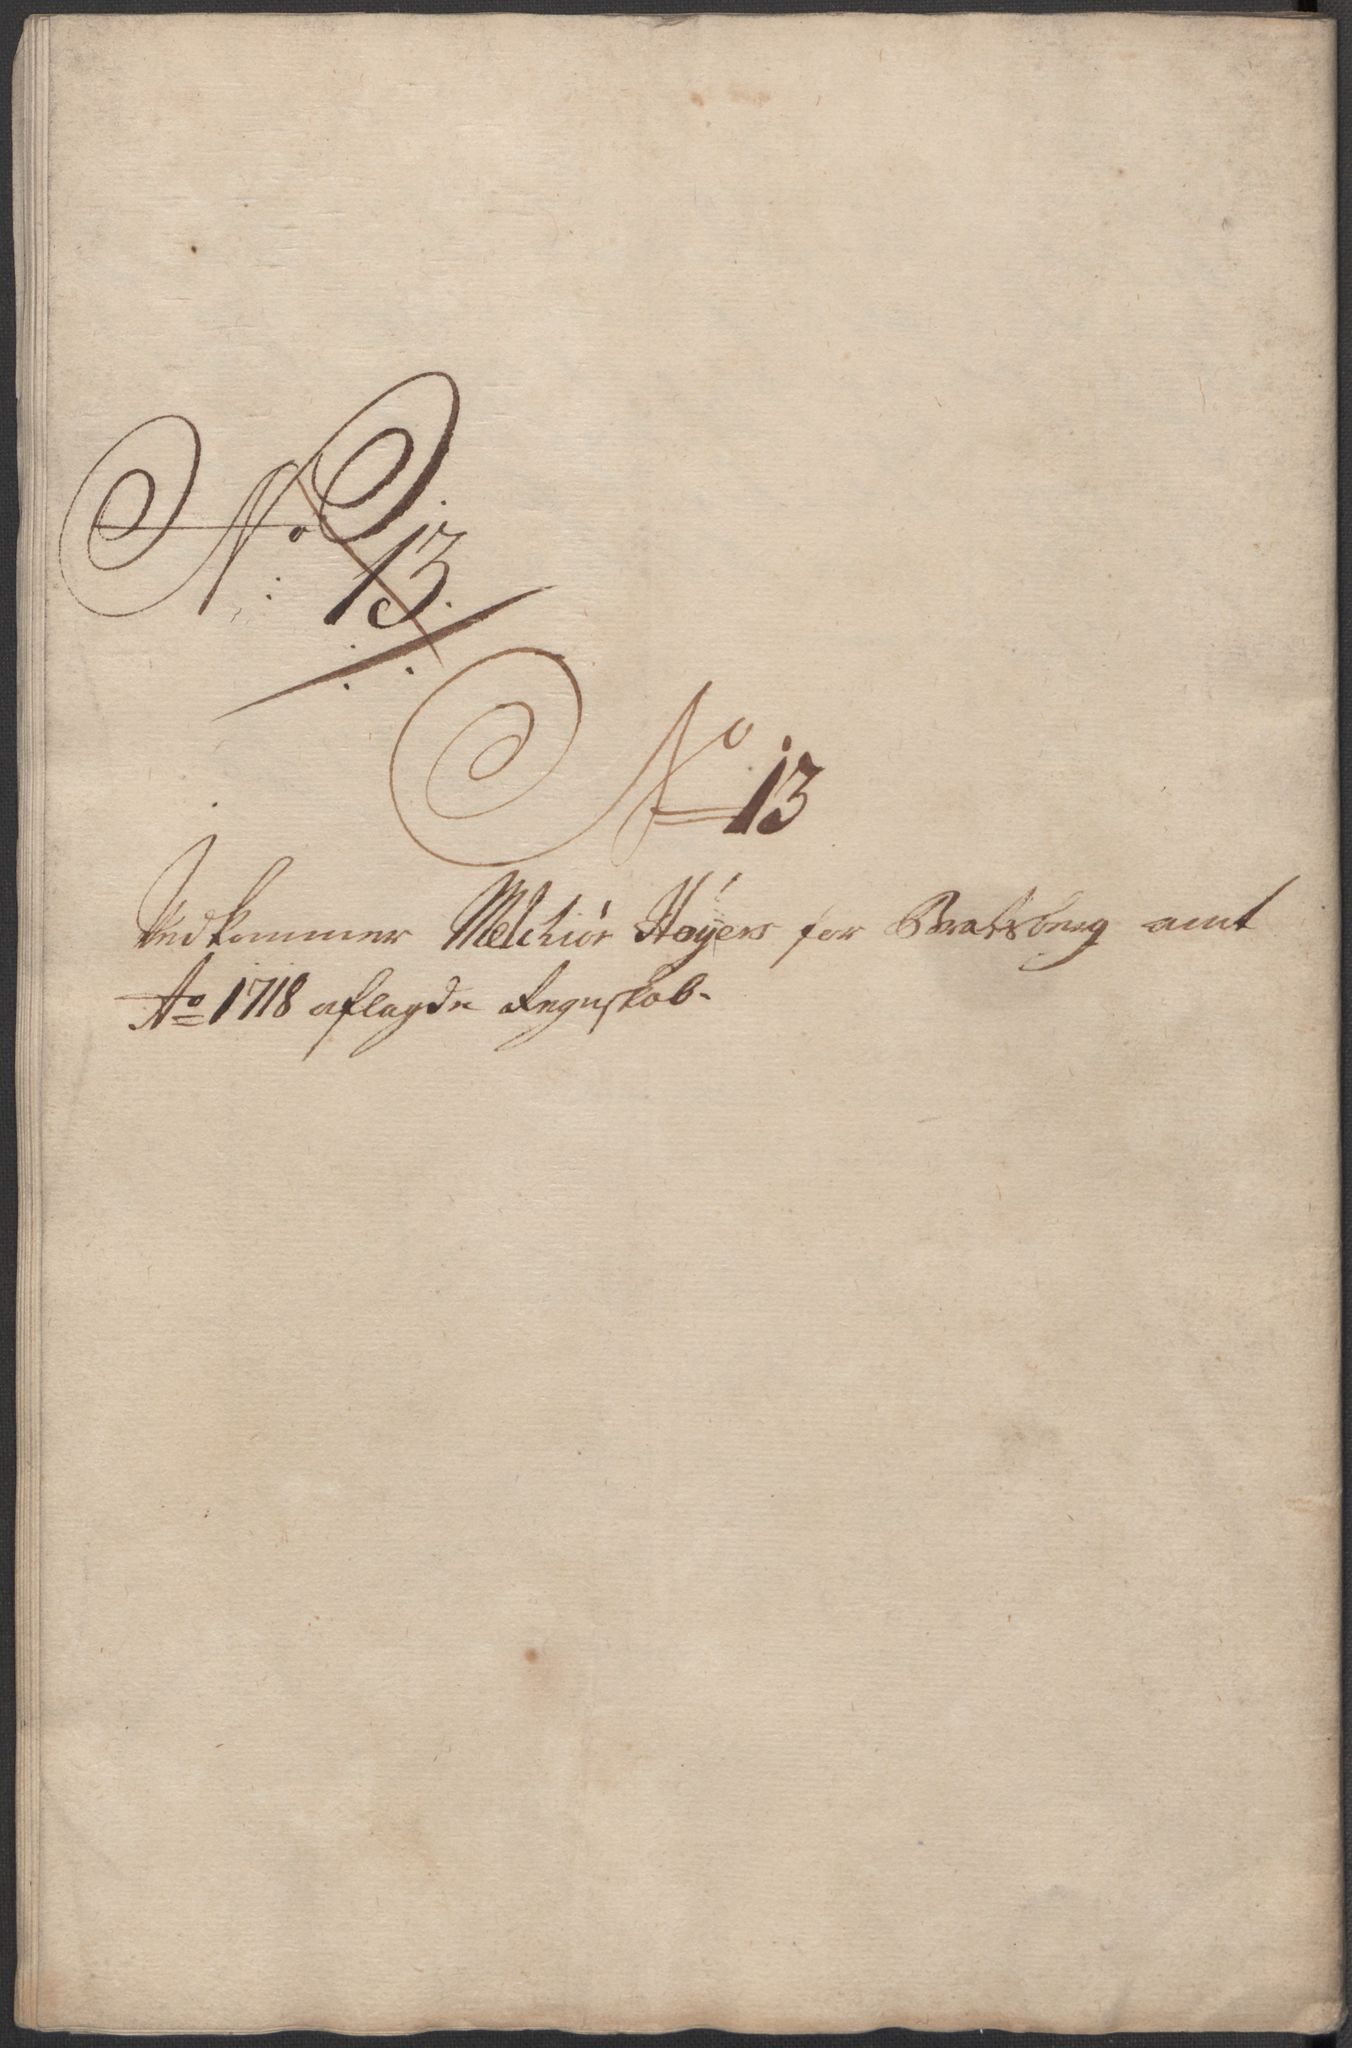 No 13.
No 13
Vedkommer Melchior Høÿers for Bratsberg amt
Ao 1718 aflagde Regnskab.